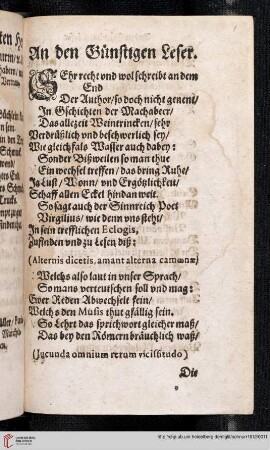 An den Günstigen Leser.
SEhr recht vnd wol schreibt an dem
End
Der Author/ so doch nicht genent/
In Gschichten der Machabeer/
Das allezeit Weintrincken/ sehr
Verdrüßlich vnd beschwerlich sey/
Wie gleichfals Wasser auch dabey:
Sonder Bißweilen so man thue
Ein wechsel treffen/ das bring Ruhe/
Ja Lust/ Wonn/ vnd Ergötzlichkeit/
Schaff allen Eckel hindan weit.
So sagt auch der Sinnreich Poet
Virgilius/ wie denn vns steht/
In sein trefflichen Eclogis,
Zufinden vnd zu Lesen diß:
(Alternis dicetis, amant alterna camœnæ)
Welchs also laut in vnser Sprach/
So mans verteutschen soll vnd mag:
Ewer Reden Abwechselt fein/
Welchs den Musis thut gfällig sein.
So Lehrt das sprichwort gleicher maß/
Das bey den Römern bräuchlich waß/
(Jucunda omnium rerum vicissitudo)
Die